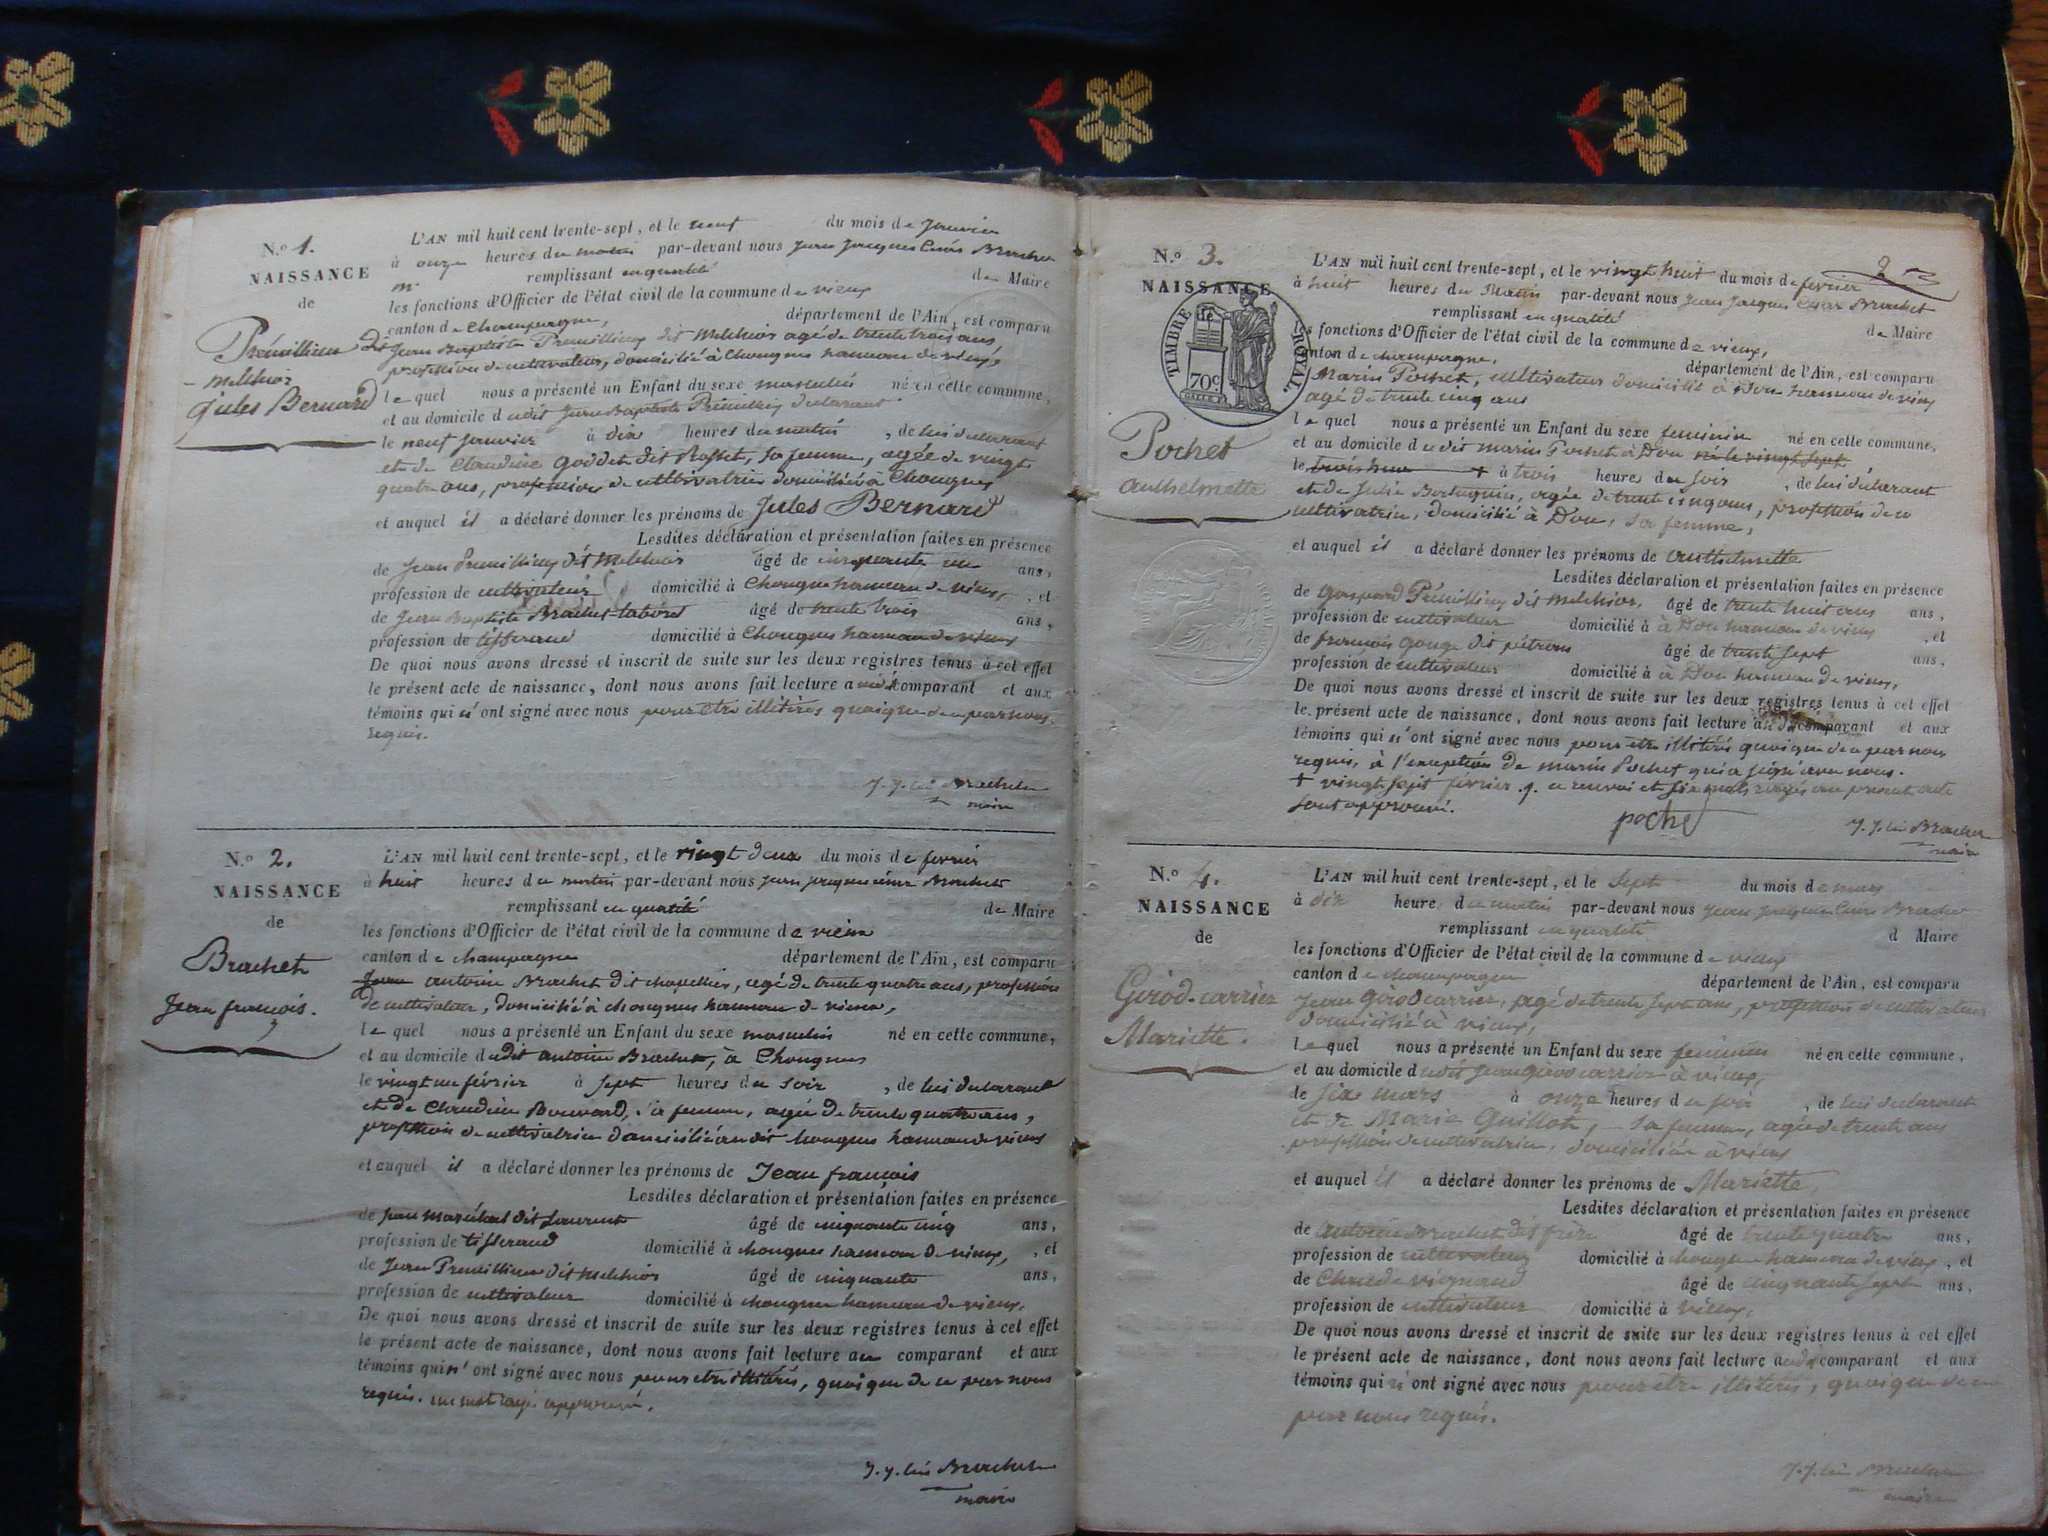 N.º 1.
NAISSANCE
de
Prémillieu dit
melchior
Jules Bernard
L'AN mil huit cent trente-sept, et le neuf du mois de Janvier
à onze heures du matin par-devant nous Jean Jacques Brachet
remplissant en qualité de Maire
les fonctions d'Officier de l'état civil de la commune de vieux
canton de Champagne, département de l'Ain, est comparu
Jean Baptiste dit Melchior agé de trente trois ans
profession de cultivateur, domicilié à Chongnes hameau de vieux,
le quel nous a présenté un Enfant du sexe masculin né en cette commune,
et au domicile dudit Jean Baptiste déclarant
le neuf janvier à dix heures du matin, de lui déclarant
et de Claudine Goddet dit Rosset, sa femme, agée de vingt
quatre ans, profession de cultivatrice domiciliée à Chongnes
et auquel il a déclaré donner les prénoms de Jules Bernard
Lesdites déclaration et présentation faites en présence
de Jean dit Melchior âgé de cinquante un ans,
profession de cultivateur domicilié à Chongnes hameau de vieux, et
de Jean Baptiste Brachet âgé de trente trois ans,
profession de tisserand domicilié à Chongnes hameau de vieux
De quoi nous avons dressé et inscrit de suite sur les deux registres tenus à cet effet
le présent acte de naissance, dont nous avons fait lecture audit comparant et aux
témoins qui n'ont signé avec nous pour être illitérés quoique de ce par nous
requis.
J. J. Brachet
maire
N.º 2.
NAISSANCE
de
Brachet
Jean françois.
L'AN mil huit cent trente-sept, et le vingt deux du mois de fevrier
à huit heures du matin par-devant nous Jean jacques Brachet
remplissant en qualité de Maire
les fonctions d'Officier de l'état civil de la commune de vieux
canton de champagne département de l'Ain, est comparu
Jean antoine Brachet dit chapellier, agé de trente quatre ans, profession
de cultivateur, domicilié à chongnes hameau de vieux,
le quel nous a présenté un Enfant du sexe masculin né en cette commune,
et au domicile dudit antoine Brachet, à Chongnes
le vingt un février à sept heures du soir, de lui déclarant
et de Claudine Bouvard, sa femme, agée de trente quatre ans,
profession de cultivatrice domiciliée audit chongnes hameau de vieux
et auquel il a déclaré donner les prénoms de Jean françois
Lesdites déclaration et présentation faites en présence
de Jean Maréchal dit Laurent âgé de cinquante cinq ans,
profession de tisserand domicilié à chongnes hameau de vieux, et
de Jean Premillieu dit Melchior âgé de cinquante ans,
profession de cultivateur domicilié à chongnes hameau de vieux,
De quoi nous avons dressé et inscrit de suite sur les deux registres tenus à cet effet
le présent acte de naissance, dont nous avons fait lecture au comparant et aux
témoins qui n'ont signé avec nous pour être illitérés, quoique de ce par nous
requis. un mot rayé approuvé.
J. J. Brachet
maire
2
N.º 3.
NAISSANCE
de
TIMBRE ROYAL.
70c
Pochet
anthelmette
L'AN mil huit cent trente-sept, et le vingt huit du mois de fevrier
à huit heures du Matin par-devant nous Jean Jacques Brachet
remplissant en qualité de Maire
les fonctions d'Officier de l'état civil de la commune de vieux,
canton de champagne, département de l'Ain, est comparu
Marin Pochet, cultivateur domicilié à Don hameau de vieux
agé de trente cinq ans
le quel nous a présenté un Enfant du sexe feminin né en cette commune,
et au domicile du dit marin Pochet à Don né le vingt sept
le trois heures + à trois heures du soir, de lui déclarant
et de Julie, agée de trente cinq ans, profession de
cultivatrice, domicilié à Don, sa femme,
et auquel il a déclaré donner les prénoms de anthelmette
Lesdites déclaration et présentation faites en présence
de Gaspard dit Melchior, âgé de trente huit ans ans,
profession de cultivateur domicilié à à Don hameau de vieux, et
de françois Gouge dit pétrou âgé de trente sept ans,
profession de cultivateur domicilié à à Don hameau de vieux,
De quoi nous avons dressé et inscrit de suite sur les deux registres tenus à cet effet
le présent acte de naissance, dont nous avons fait lecture audit comparant et aux
témoins qui n'ont signé avec nous pour être illitérés quoique de ce par nous
requis, à l'exception de marin Pochet qui a signé avec nous.
+ vingt sept février. ce renvoi et six mots rayés au présent acte
sont approuvé.
poche
J. J. Brachet
maire
N.º 4.
NAISSANCE
de
Girod-carrier
Mariette.
L'AN mil huit cent trente-sept, et le sept du mois de mars
à dix heure du matin par-devant nous Jean Jacques Brachet
remplissant en qualité d Maire
les fonctions d'Officier de l'état civil de la commune de vieux
canton de champagne département de l'Ain, est comparu
Jean Girod carrier, agé de trente sept ans, profession de cultivateur
domicilié à vieux,
le quel nous a présenté un Enfant du sexe feminin né en cette commune,
et au domicile dudit Jean Girod carrier à vieux,
le six mars à onze heures du soir, de lui déclarant
et de Marie Guillot, sa femme, agée de trente ans
profession de cultivatrice, domiciliée à vieux
et auquel il a déclaré donner les prénoms de Mariette,
Lesdites déclaration et présentation faites en présence
de antoine Brachet dit frère âgé de trente quatre ans,
profession de cultivateur domicilié à chongne hameau de vieux, et
de Claude vignaud âgé de cinquante sept ans,
profession de cultivateur domicilié à vieux,
De quoi nous avons dressé et inscrit de suite sur les deux registres tenus à cet effet
le présent acte de naissance, dont nous avons fait lecture audit comparant et aux
témoins qui n'ont signé avec nous pour être illitérés, quoique de ce
par nous requis.
J. J. Brachet
maire